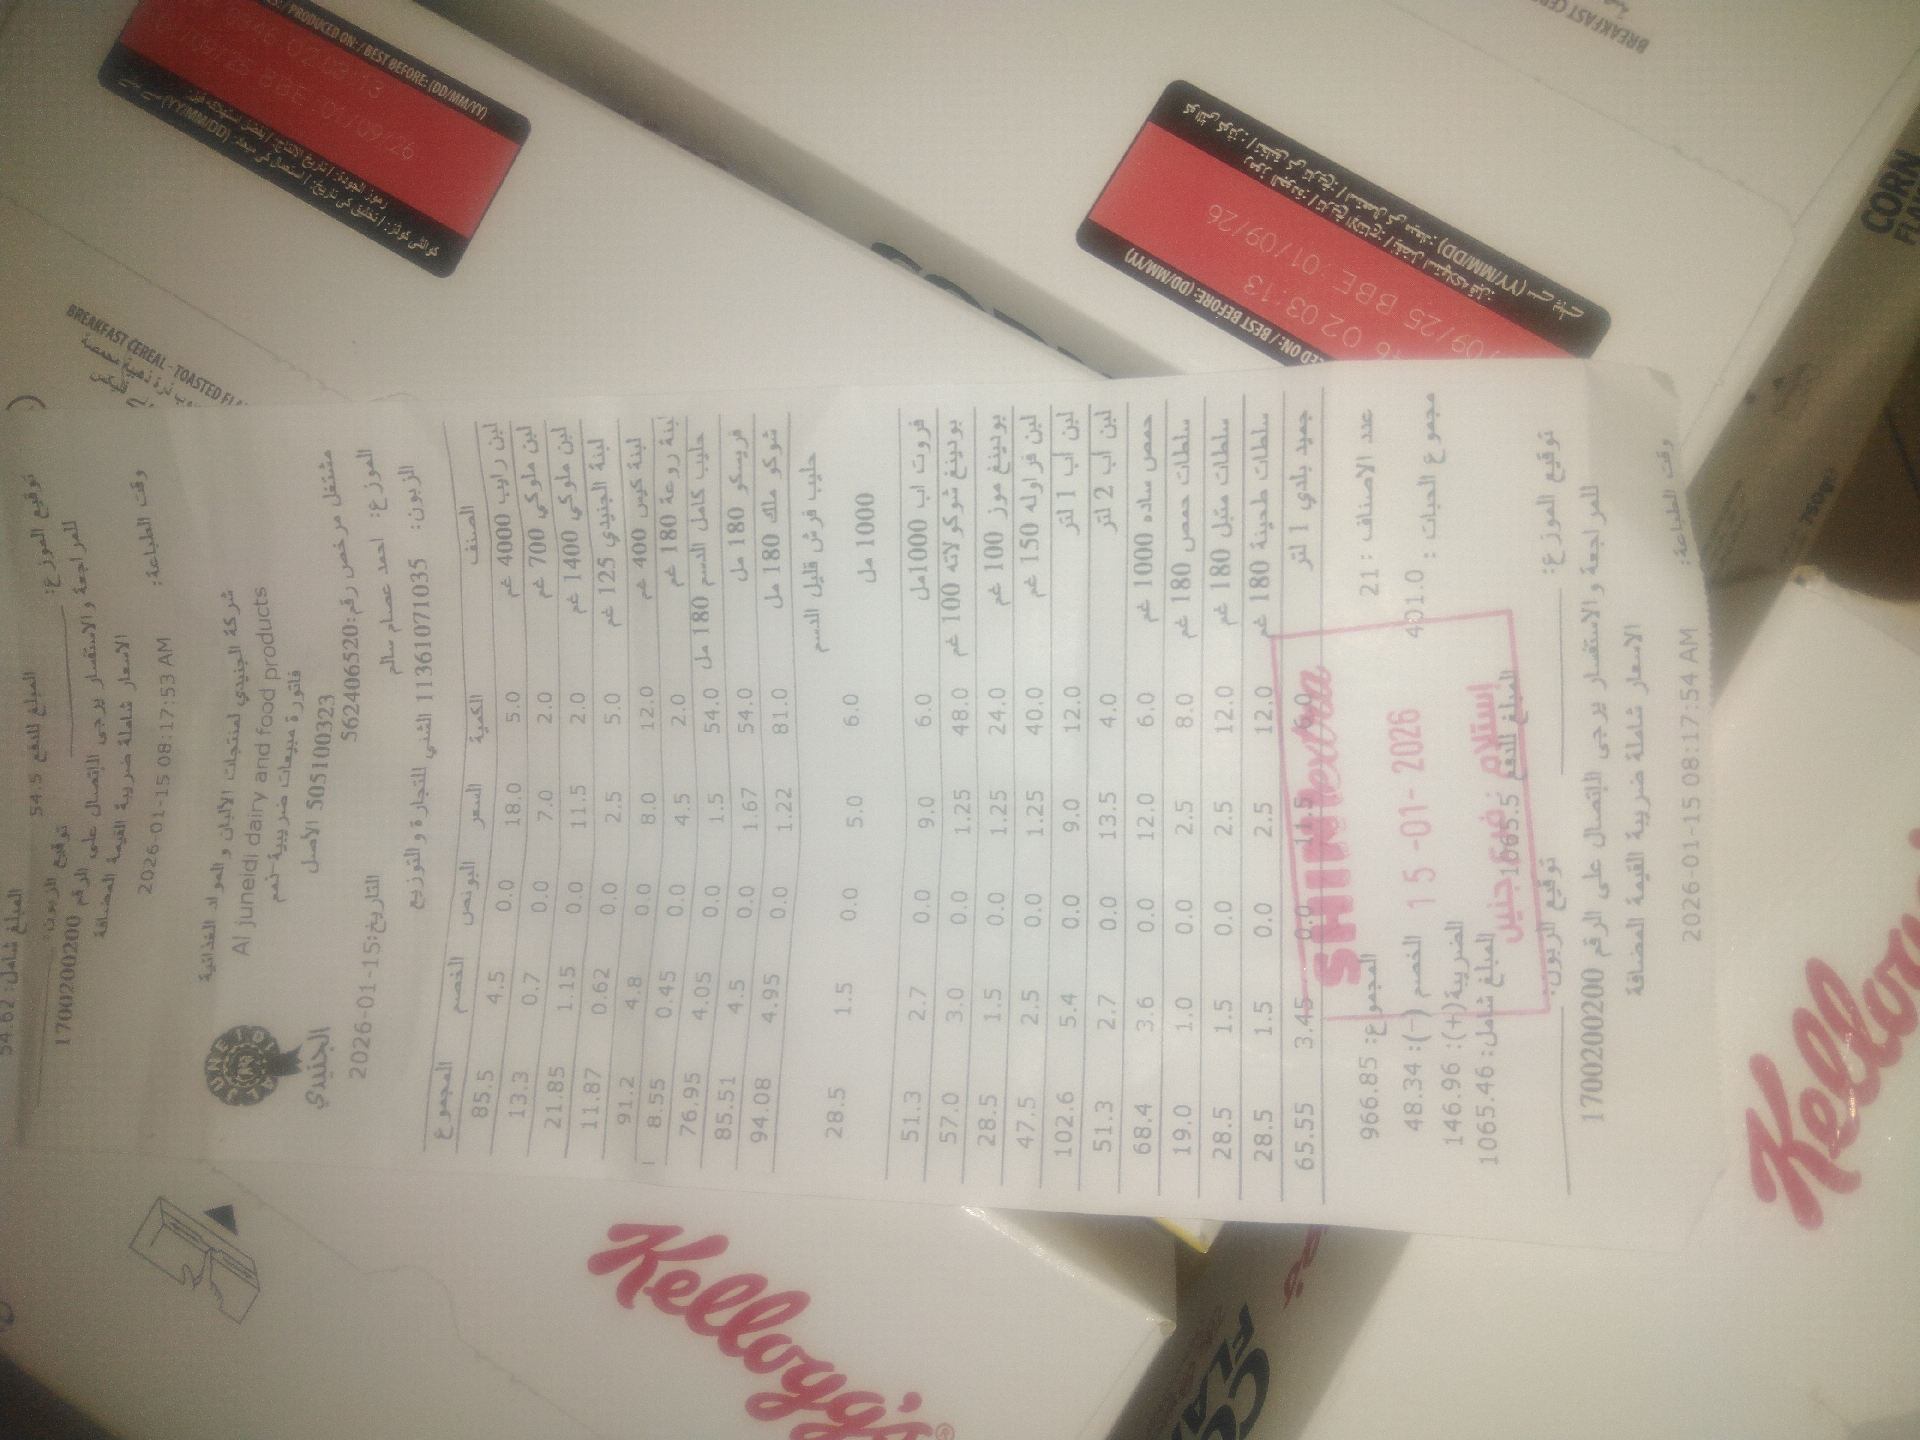 المبلغ شامل: 54.62
المبلغ للدفع 54.5
توقيع الموزع: توقيع الزبون:
للمراجعة والاستفسار يرجى الاتصال على الرقم 1700200200
الاسعار شاملة ضريبة القيمة المضافة
وقت الطباعة: 2026-01-15 08:17:53 AM
شركة الجنيدي لمنتجات الالبان والمواد الغذائية
Al juneidi dairy and food products
الجنيدي
فاتورة مبيعات ضريبية-نعم
505100323 الأصل
مشتغل مرخص رقم:562406520
الموزع: احمد عصام سالم التاريخ:2026-01-15
الزبون: 11361071035 الشني للتجارة والتوزيع
الصنف الكمية السعر البونص الخصم المجموع
لبن رايب 4000 غم 5.0 18.0 0.0 4.5 85.5
لبن ملوكي 700 غم 2.0 7.0 0.0 0.7 13.3
لبن ملوكي 1400 غم 2.0 11.5 0.0 1.15 21.85
لبنة الجنيدي 125 غم 5.0 2.5 0.0 0.62 11.87
لبنة كيس 400 غم 12.0 8.0 0.0 4.8 91.2
لبنة روعة 180 غم 2.0 4.5 0.0 0.45 8.55
حليب كامل الدسم 180 مل 54.0 1.5 0.0 4.05 76.95
فريسكو 180 مل 54.0 1.67 0.0 4.5 85.51
شوكو ملك 180 مل 81.0 1.22 0.0 4.95 94.08
حليب فرش قليل الدسم
1000 مل 6.0 5.0 0.0 1.5 28.5
فروت اب 1000مل 6.0 9.0 0.0 2.7 51.3
بودينغ شوكولاته 100 غم 48.0 1.25 0.0 3.0 57.0
بودينغ موز 100 غم 24.0 1.25 0.0 1.5 28.5
لبن فراوله 150 غم 40.0 1.25 0.0 2.5 47.5
لبن اب 1 لتر 12.0 9.0 0.0 5.4 102.6
لبن اب 2 لتر 4.0 13.5 0.0 2.7 51.3
حمص ساده 1000 غم 6.0 12.0 0.0 3.6 68.4
سلطات حمص 180 غم 8.0 2.5 0.0 1.0 19.0
سلطات متبل 180 غم 12.0 2.5 0.0 1.5 28.5
سلطات طحينة 180 غم 12.0 2.5 0.0 1.5 28.5
جميد بلدي 1 لتر 6.0 11.5 0.0 3.45 65.55
عدد الاصناف : 21 المجموع: 966.85
مجموع الحبات : 401.0 الخصم (-): 48.34
الضريبة(+): 146.96
المبلغ للدفع 1065.5 المبلغ شامل: 1065.46
SHINI extra
15-01-2026
إستلام فرع جنين
توقيع الموزع: توقيع الزبون:
للمراجعة والاستفسار يرجى الاتصال على الرقم 1700200200
الاسعار شاملة ضريبة القيمة المضافة
وقت الطباعة: 2026-01-15 08:17:54 AM
PRODUCED ON: / BEST BEFORE: (DD/MM/YY)
02 03:13
BBE: 01/09/26
BREAKFAST CEREAL - TOASTED
BEST BEFORE: (DD/MM/YY)
02 03:13
09/25 BBE: 01/09/26
(YY/MM/DD)
BREAKFAST
CORN
750g
Kellogg's
Kellogg